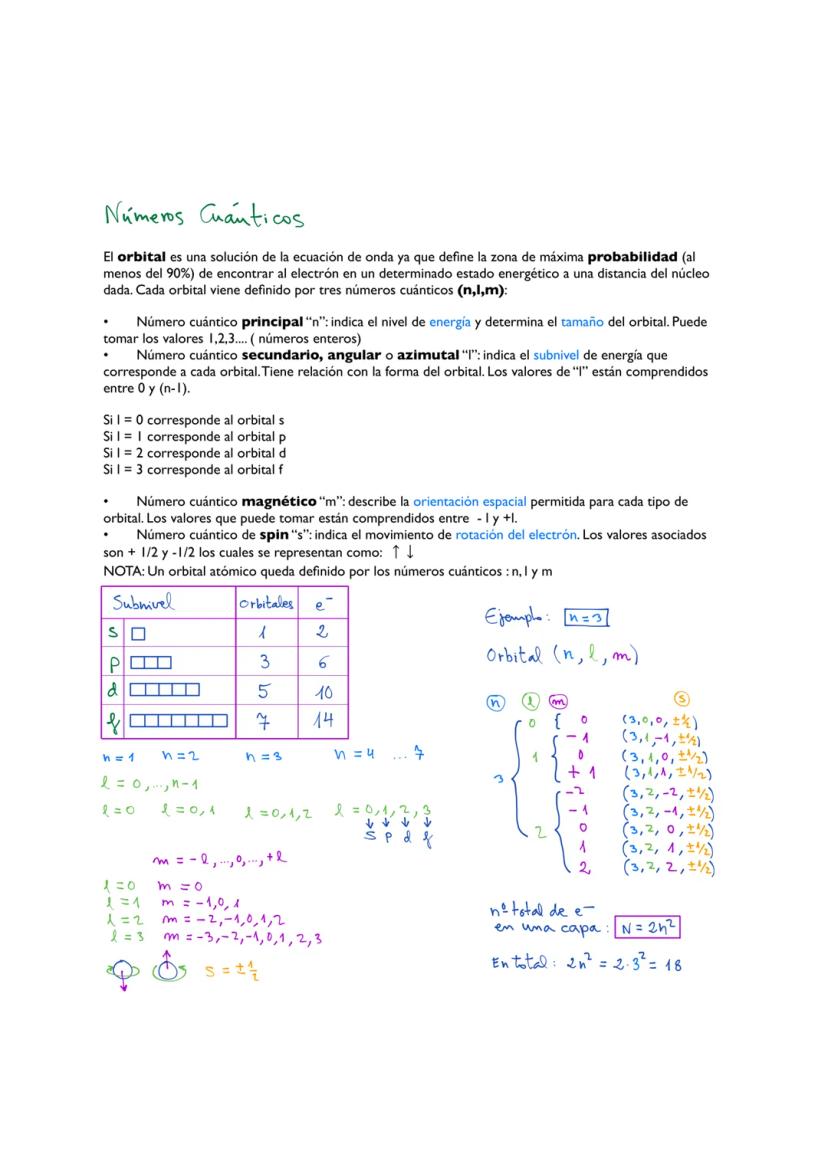 Números Cuánticos
El orbital es una solución de la ecuación de onda ya que define la zona de máxima probabilidad (al
menos del 90%) de encontrar al electrón en un determinado estado energético a una distancia del núcleo
dada. Cada orbital viene definido por tres números cuánticos (n,l,m):
• Número cuántico principal “n”: indica el nivel de energía y determina el tamaño del orbital. Puede
tomar los valores 1,2,3.... ( números enteros)
• Número cuántico secundario, angular o azimutal “l”: indica el subnivel de energía que
corresponde a cada orbital. Tiene relación con la forma del orbital. Los valores de “l” están comprendidos
entre 0 y (n-1).
Si l = 0 corresponde al orbital s
Si l = 1 corresponde al orbital p
Si l = 2 corresponde al orbital d
Si l = 3 corresponde al orbital f
• Número cuántico magnético “m”: describe la orientación espacial permitida para cada tipo de
orbital. Los valores que puede tomar están comprendidos entre - l y +l.
• Número cuántico de spin “s”: indica el movimiento de rotación del electrón. Los valores asociados
son + 1/2 y -1/2 los cuales se representan como: ↑ ↓
NOTA: Un orbital atómico queda definido por los números cuánticos : n, l y m
Subnivel orbitales e⁻
s 1 2
p 3 6
d 5 10
f 7 14
n = 1 n = 2 n = 3 n = 4 ... 7
l = 0,...,n-1
l = 0 l = 0,1 l = 0,1,2 l = 0,1,2,3
↓ ↓ ↓ ↓
s p d f
m = -l,...,0,...,+l
l = 0 m = 0
l = 1 m = -1,0,1
l = 2 m = -2,-1,0,1,2
l = 3 m = -3,-2,-1,0,1,2,3
s = ±1/2
Ejemplo: n = 3
Orbital (n, l, m)
n l m s
0 { 0 (3,0,0, ±1/2)
-1 (3,1,-1, ±1/2)
1 0 (3,1,0, ±1/2)
+1 (3,1,1, ±1/2)
3
-2 (3,2,-2, ±1/2)
-1 (3,2,-1, ±1/2)
2 0 (3,2,0, ±1/2)
1 (3,2,1, ±1/2)
2 (3,2,2, ±1/2)
nº total de e⁻
en una capa : N = 2n²
En total: 2n² = 2·3² = 18